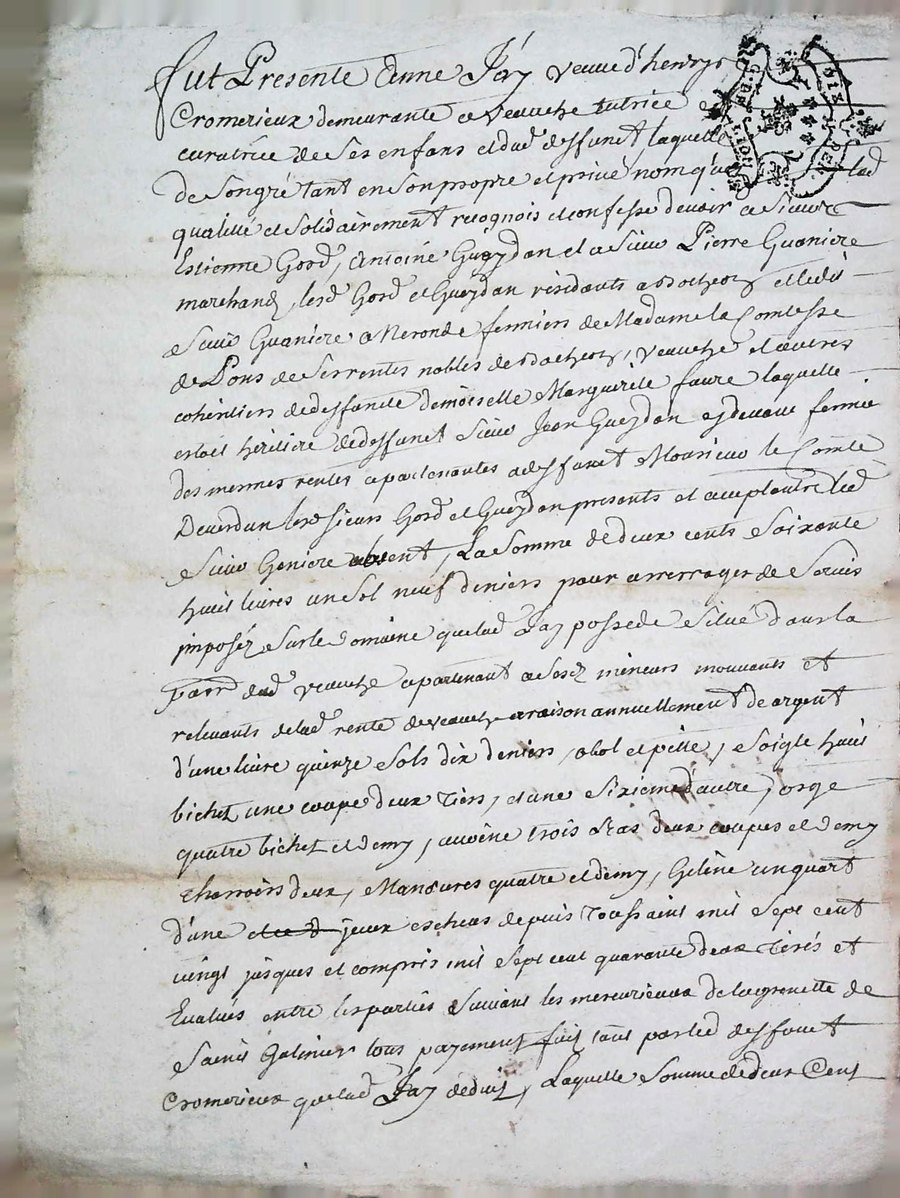 fut Presente Anne Jay veuve d'henry
Cromerieux demeurante a Veauche tutrice
curatrice de Ses enfans et dud deffunct laquelle
de Songré tant en Son propre et privé nom qu'en lad
qualitté et Solidairement recognois et confesse devoir a Sieurs
Estienne Gord, Antoine Gueydan et a Sieur Pierre Guaniere
marchand, lesd Gord et Gueydan residants a et ledit
Sieur Guaniere a Neronde fermiers de Madame la Comtesse
de Pons de Ses rentes nobles de Veauche et autres
cohéritiers de deffuncte demoiselle Marguerite faure laquelle
estoit héritiere de deffunct Sieur Jean Gueydan cy devant fermier
des mesmes rentes apartenantes a deffunct Monsieur le Comte
De verdun lesd Sieurs Gord et Gueydan presents et acceptants led
Sieur Geniere absent, La Somme de deux cents Soixante
huit livres un Sol neuf deniers pour arrerages de Servis
imposéz Sur le Domaine que lad Jay possede Situé dans la
parr dud Veauche apartenant a Sesd mineurs mouvants et
relevants de lad rente de Veauche a raison annuellement de argent
d'une livre quinze Sols dix deniers, obol et pitte, Soigle huit
bichet une coupe deux tiers, et une Sixieme d'autre, orge
quatre bichet et demy, avoine trois Ras deux coupes et demy
charrois deux, Manœures quatre et demy, Geline un quart
d'une et iceux escheus depuis Toussaint mil Sept cent
vingt jusques et compris mil Sept cent quarante deux tirés et
Evalués entre les parties Suivant les mercurieux de la grenette de
Saint Galmier tous payement fait tant par led deffunct
Cromerieux que lad Jay déduit, Laquelle Somme de deux Cent
G. DE LION
DIX DEN.